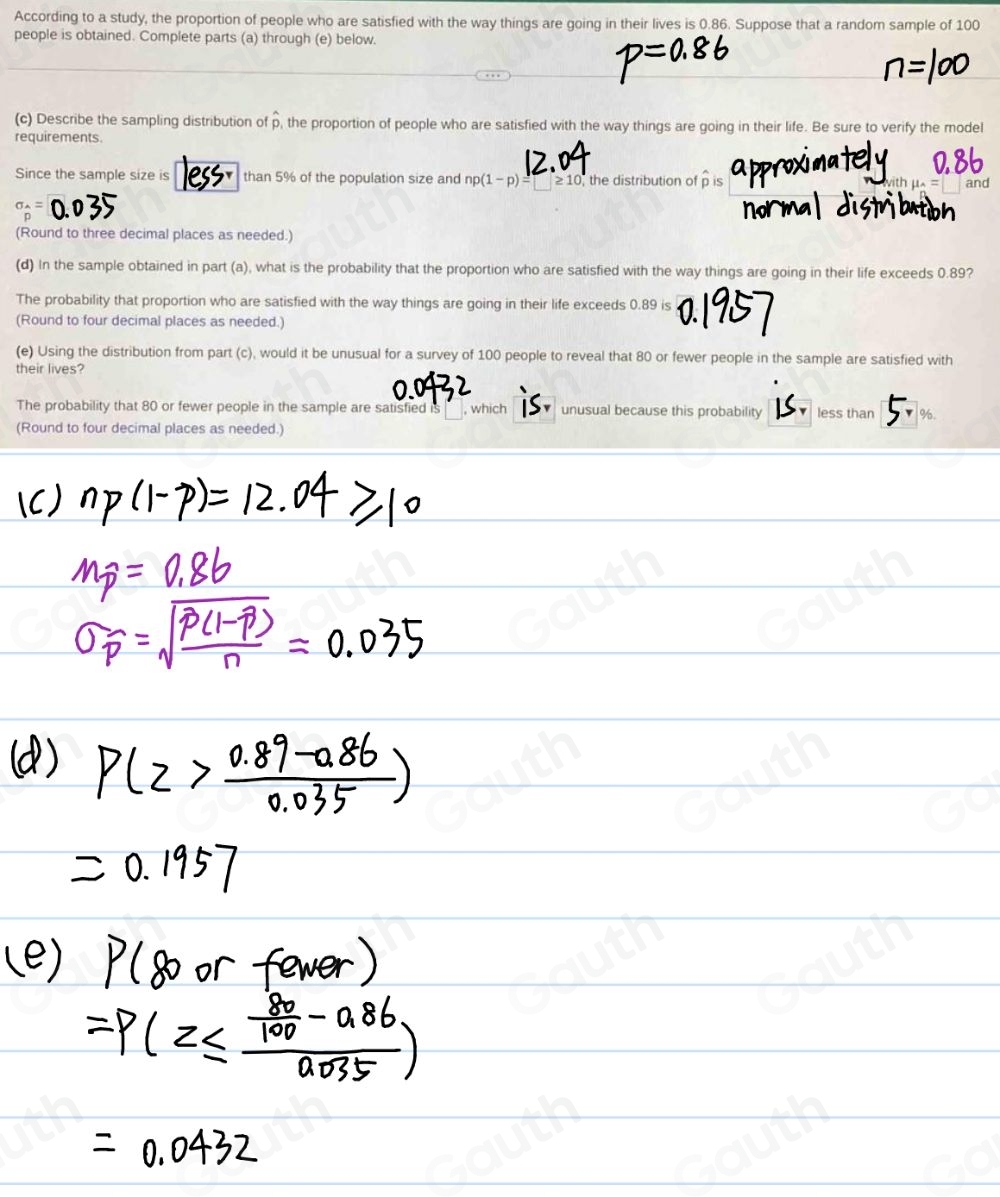 According to a study, the proportion of people who are satisfied with the way things are going in their lives is 0.86. Suppose that a random sample of 100
people is obtained. Complete parts (a) through (e) below.
p=0.86
n=100
(c) Describe the sampling distribution of p̂, the proportion of people who are satisfied with the way things are going in their life. Be sure to verify the model
requirements.
Since the sample size is less than 5% of the population size and np(1 − p) = 12.04 ≥ 10, the distribution of p̂ is approximately normal distribution with μp̂ = 0.86 and
σp̂ = 0.035
(Round to three decimal places as needed.)
(d) In the sample obtained in part (a), what is the probability that the proportion who are satisfied with the way things are going in their life exceeds 0.89?
The probability that proportion who are satisfied with the way things are going in their life exceeds 0.89 is 0.1957
(Round to four decimal places as needed.)
(e) Using the distribution from part (c), would it be unusual for a survey of 100 people to reveal that 80 or fewer people in the sample are satisfied with
their lives?
The probability that 80 or fewer people in the sample are satisfied is 0.0432, which is unusual because this probability is less than 5 %.
(Round to four decimal places as needed.)
(c) np(1-p)= 12.04 ≥10
μp̂ = 0.86
σp̂ = √(p̂(1-p̂)/n) = 0.035
(d) P(z > (0.89-0.86)/0.035)
= 0.1957
(e) P(80 or fewer)
=P(z ≤ (80/100 - 0.86)/0.035)
= 0.0432